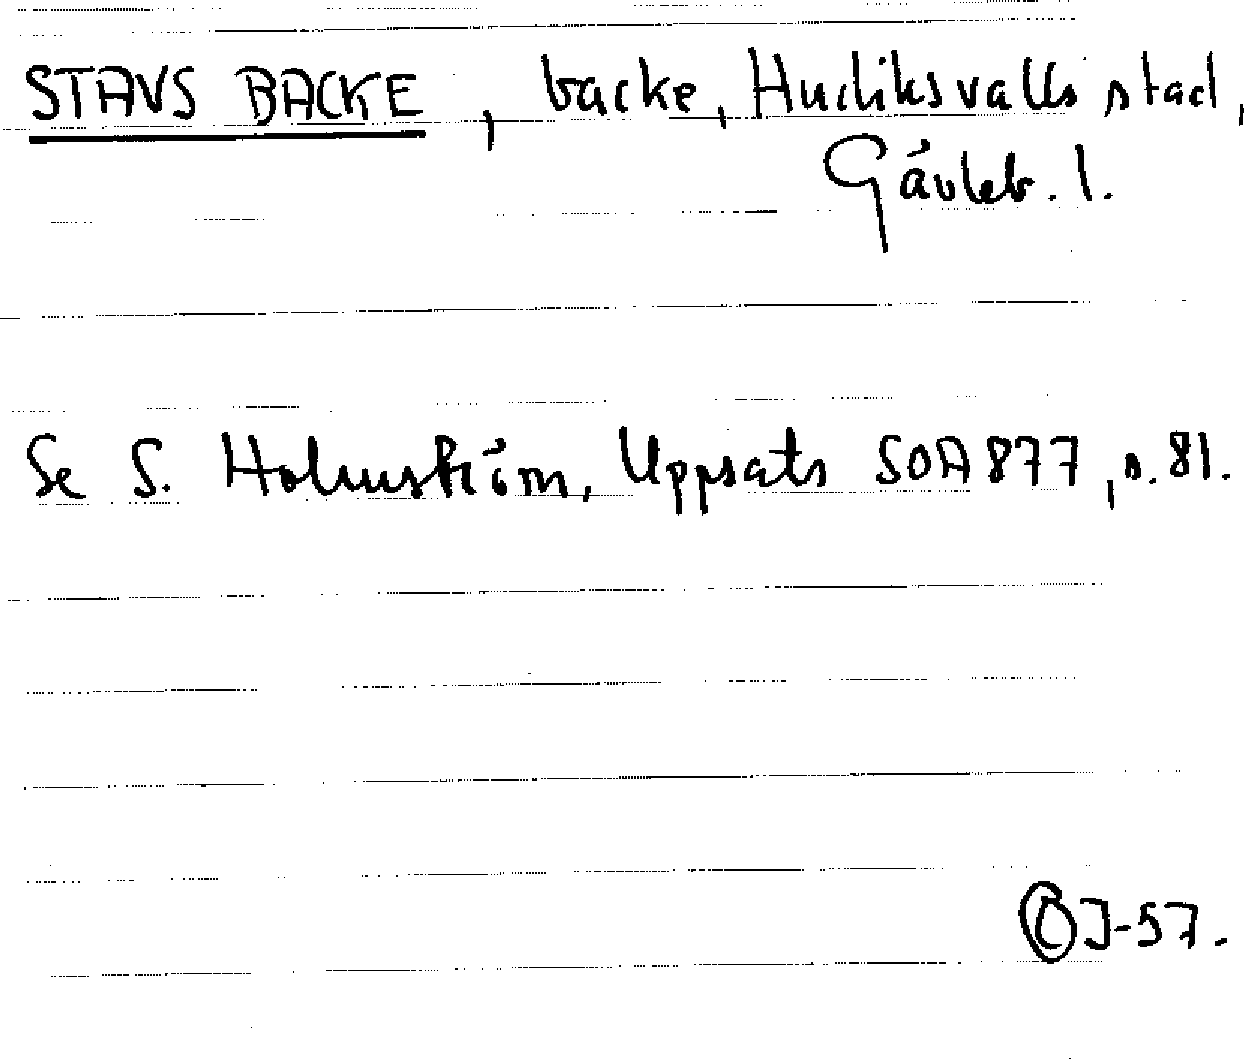 STAVS BACKE, backe, Hudiksvalls stad,
Gävleb. l.
Se S. Holmström, Uppsats SOA 877, s. 81.
OJ-57.